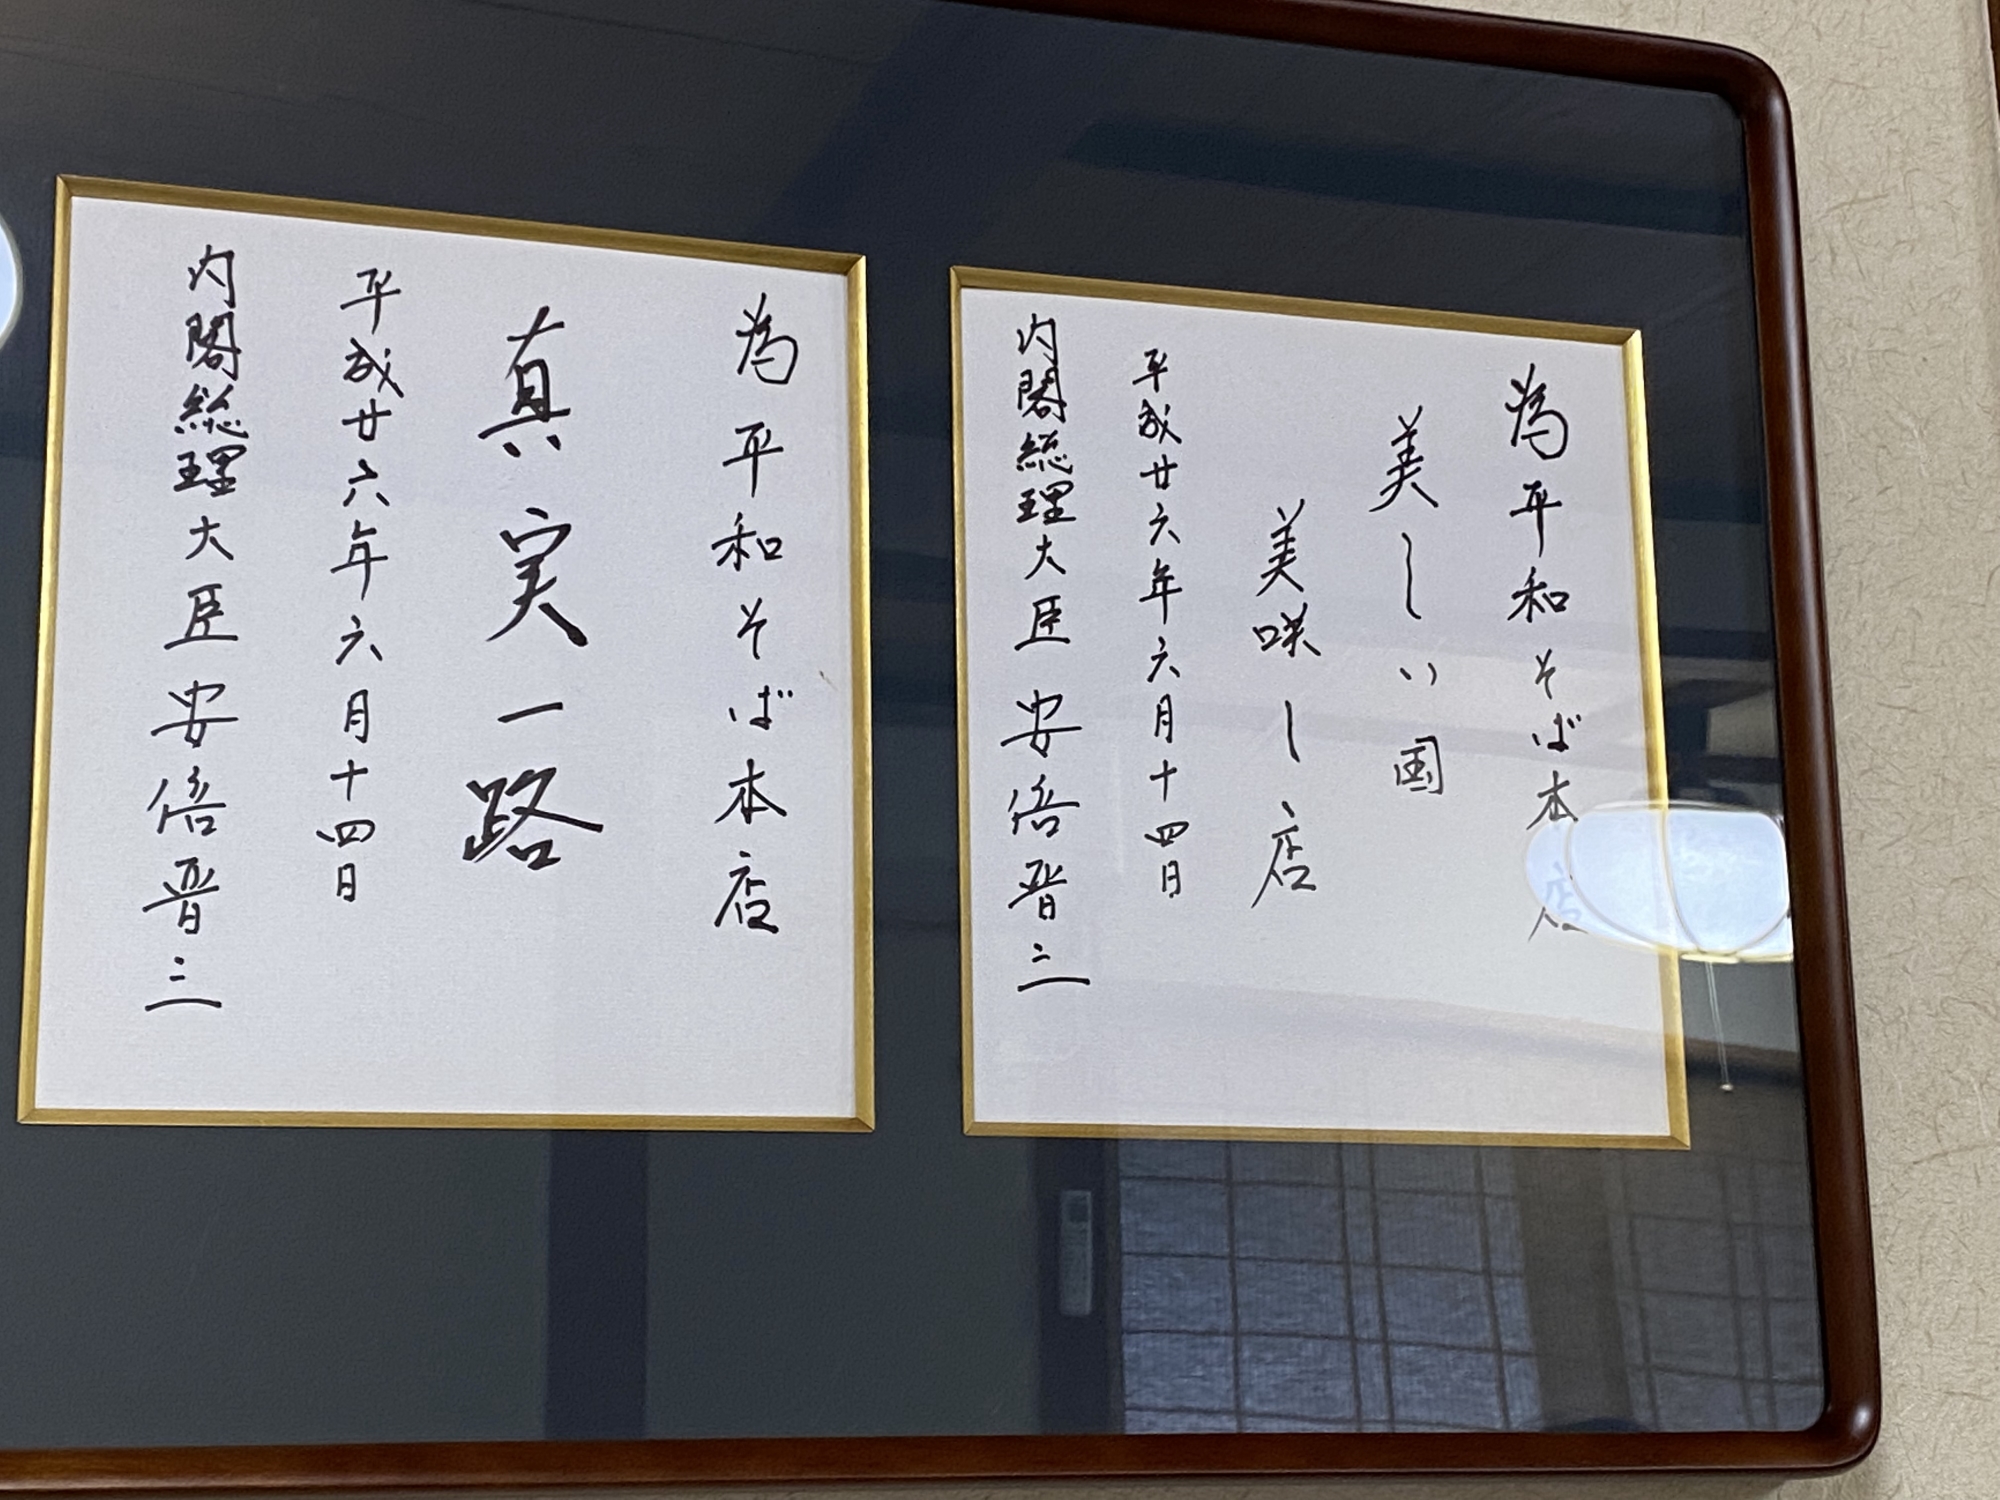 為平和そば本店
美しい国
美咲し店
平成廿六年六月十四日
内閣総理大臣安倍晋三
為平和そば本店
真実一路
平成廿六年六月十四日
内閣総理大臣安倍晋三